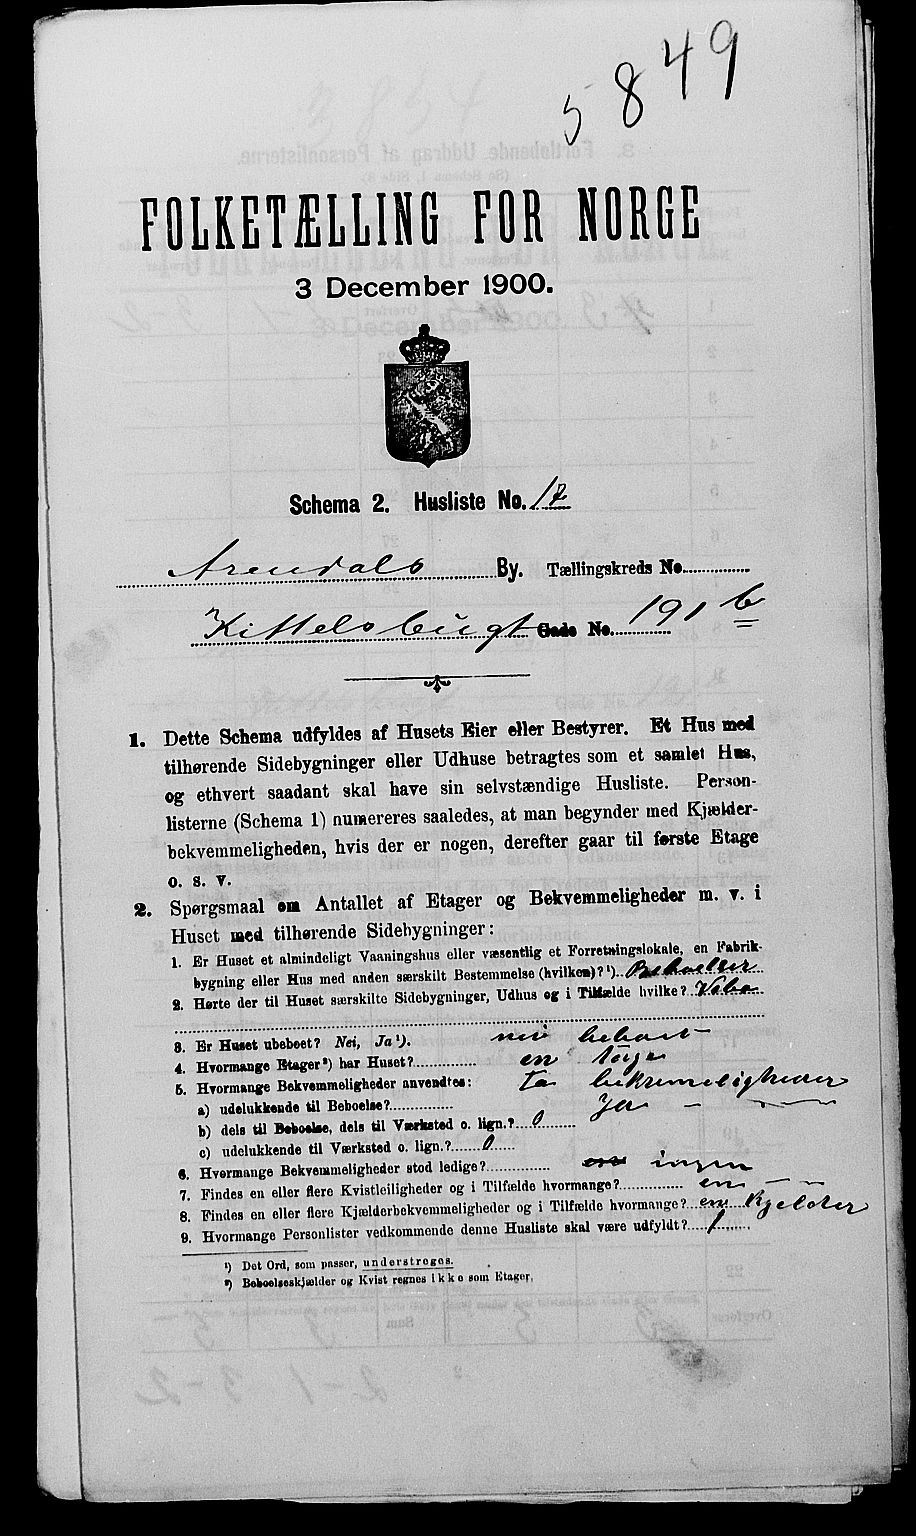 5849
FOLKETÆLLING FOR NORGE
3 December 1900.
Schema 2. Husliste No. 17
Arendals By. Tællingskreds No.
Kittelsbugt Gade No. 191 b
1. Dette Schema udfyldes af Husets Eier eller Bestyrer. Et Hus med
tilhørende Sidebygninger eller Udhuse betragtes som et samlet Hus,
og ethvert saadant skal have sin selvstændige Husliste. Person-
listerne (Schema 1) numereres saaledes, at man begynder med Kjælder-
bekvemmeligheden, hvis der er nogen, derefter gaar til første Etage
o. s. v.
2. Spørgsmaal om Antallet af Etager og Bekvemmeligheder m. v. i
Huset med tilhørende Sidebygninger:
1. Er Huset et almindeligt Vaaningshus eller væsentlig et Forretningslokale, en Fabrik-
bygning eller Hus med anden særskilt Bestemmelse (hvilken)?¹)
2. Hørte der til Huset særskilte Sidebygninger, Udhus og i Tilfælde hvilke?
3. Er Huset ubeboet? Nei, Ja¹). bebort
4. Hvormange Etager²) har Huset? en
5. Hvormange Bekvemmeligheder anvendtes: To bekvemeligheder
a) udelukkende til Beboelse?
b) dels til Beboelse, dels til Værksted o. lign.? 0
c) udelukkende til Værksted o. lign.? 0
6. Hvormange Bekvemmeligheder stod ledige? ingen
7. Findes en eller flere Kvistleiligheder og i Tilfælde hvormange? en
8. Findes en eller flere Kjælderbekvemmeligheder og i Tilfælde hvormange? en Kjelder
9. Hvormange Personlister vedkommende denne Husliste skal være udfyldt? 1
¹) Det Ord, som passer, understreges.
²) Beboelseskjælder og Kvist regnes ikke som Etager.